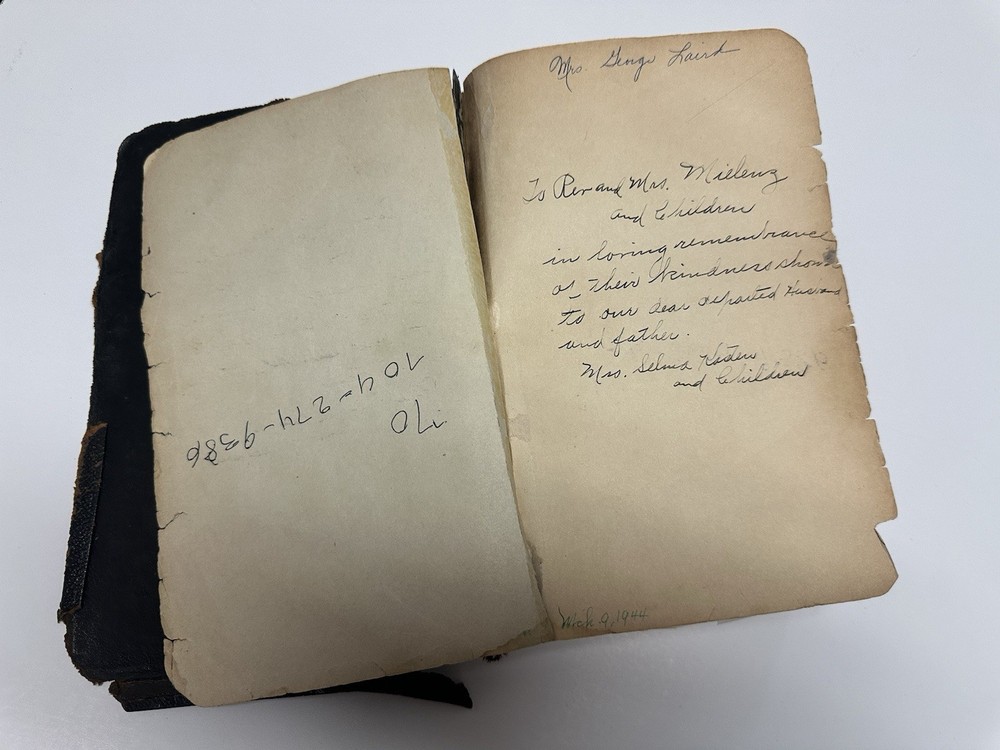 104-274-9386
170
Mrs. George Laird
To Rev and Mrs. Mielenz
and Children
in loving remembrance
of their kindness shown
to our dear departed Husband
and father.
Mrs. Selma Koden
and Children
Mch. 9, 1944